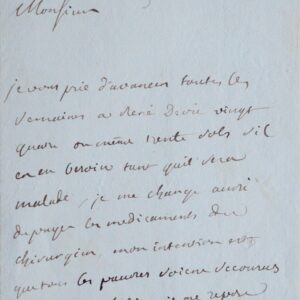 Monsieur
je vous prie d'avancer toutes les
semaines a René Droie vingt
quatre ou même trente sols s'il
en en besoin tant quil sera
malade, je me charge aussi
de payer les medicaments du
chirurgien, mon intention est
que tous les pauvres soient secourus
je me repose